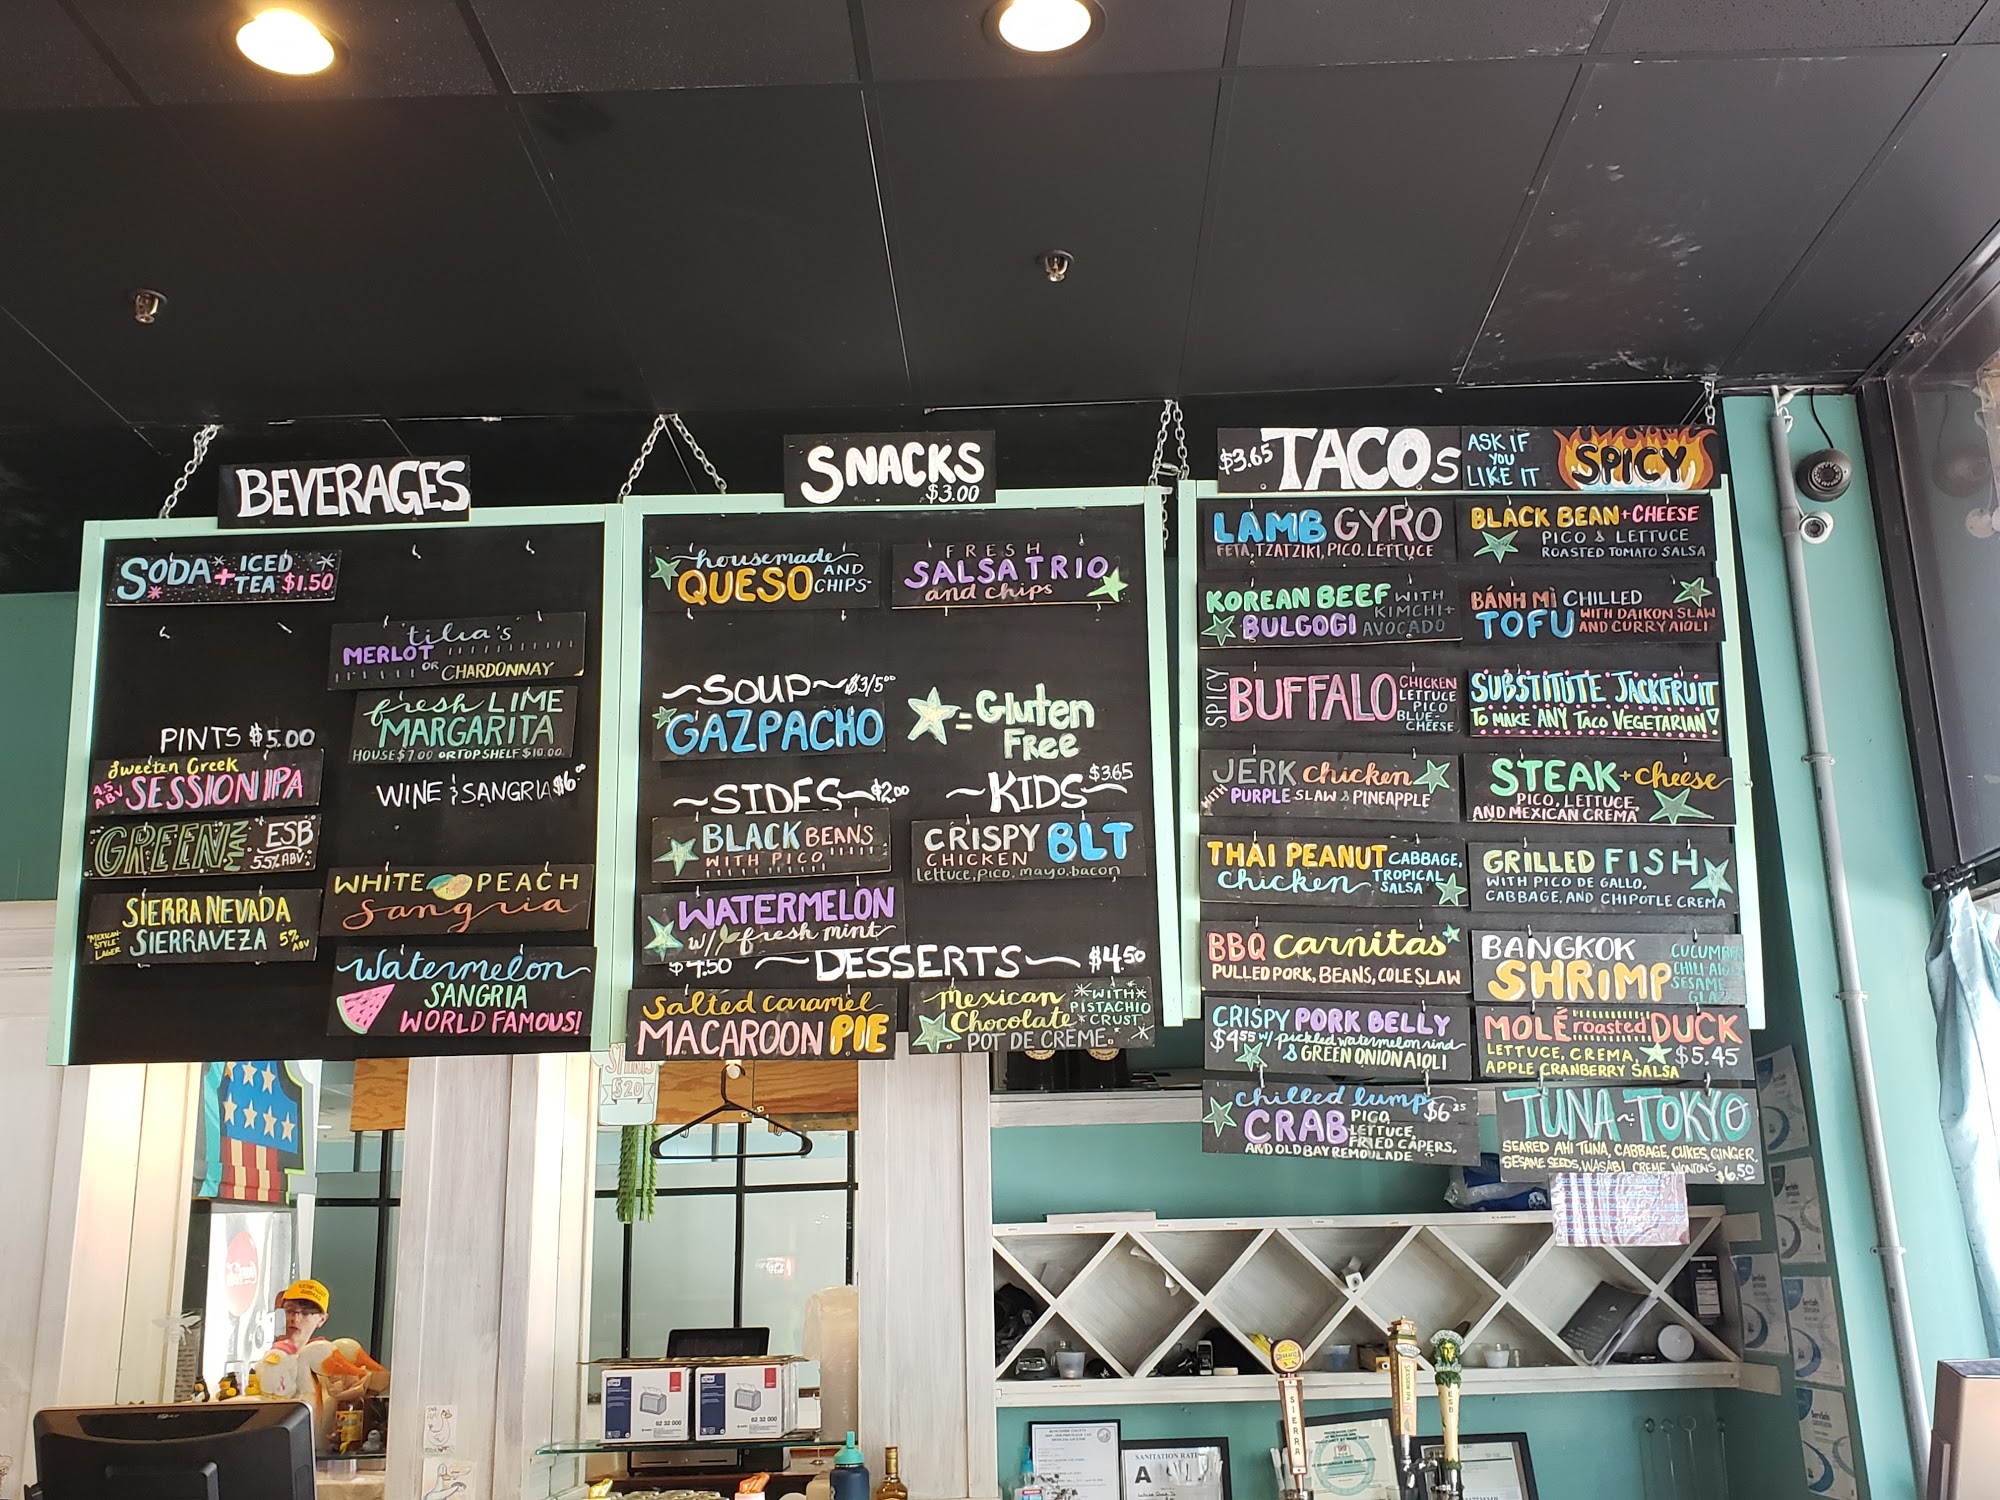 BEVERAGES
SODA + ICED TEA $1.50
tilia's
MERLOT
OR CHARDONNAY
fresh LIME
MARGARITA
HOUSE $7.00 OR TOP SHELF $10.00
PINTS $5.00
Sweeten Creek
4.5 ABV SESSION IPA
WINE & SANGRIA $6.00
GREEN MAN ESB
5.5% ABV
WHITE PEACH
Sangria
SIERRA NEVADA
"MEXICAN-STYLE" LAGER SIERRAVEZA 5% ABV
Watermelon
SANGRIA
WORLD FAMOUS!
SNACKS
$3.00
housemade
QUESO AND CHIPS
FRESH
SALSA TRIO
and chips
~SOUP~ $3/5.00
GAZPACHO
= Gluten
Free
~SIDES~ $2.00
BLACK BEANS
WITH PICO
WATERMELON
w/ fresh mint
~KIDS~ $3.65
CRISPY BLT
CHICKEN
Lettuce, pico, mayo, bacon
$4.50 ~DESSERTS~ $4.50
Salted Caramel
MACAROON PIE
Mexican
Chocolate
WITH PISTACHIO CRUST
POT DE CREME
$3.65 TACOS
ASK IF YOU LIKE IT SPICY
LAMB GYRO
FETA, TZATZIKI, PICO, LETTUCE
KOREAN BEEF WITH
BULGOGI KIMCHI + AVOCADO
SPICY BUFFALO CHICKEN
LETTUCE
PICO
BLUE-
CHEESE
JERK chicken
WITH PURPLE SLAW & PINEAPPLE
THAI PEANUT CABBAGE,
chicken TROPICAL SALSA
BBQ Carnitas
PULLED PORK, BEANS, COLESLAW
CRISPY PORK BELLY
$4.55 w/ pickled watermelon rind
& GREEN ONION AIOLI
chilled lump $6.25
CRAB PICO,
LETTUCE,
FRIED CAPERS,
AND OLD BAY REMOULADE
BLACK BEAN + CHEESE
PICO & LETTUCE
ROASTED TOMATO SALSA
BÁNH MÌ CHILLED
TOFU WITH DAIKON SLAW
AND CURRY AIOLI
SUBSTITUTE JACKFRUIT
TO MAKE ANY TACO VEGETARIAN!
STEAK + cheese
PICO, LETTUCE,
AND MEXICAN CREMA
GRILLED FISH
WITH PICO DE GALLO,
CABBAGE, AND CHIPOTLE CREMA
BANGKOK
SHRIMP
CUCUMBER
CHILI AIOLI
SESAME
MOLÉ roasted DUCK
LETTUCE, CREMA, $5.45
APPLE CRANBERRY SALSA
TUNA~TOKYO
SEARED AHI TUNA, CABBAGE, CUKES, GINGER,
SESAME SEEDS, WASABI CREME, WONTONS $6.50
$20
62 32 000
62 32 000
SANITATION
A
SIERRA
SESSION IPA
ESB